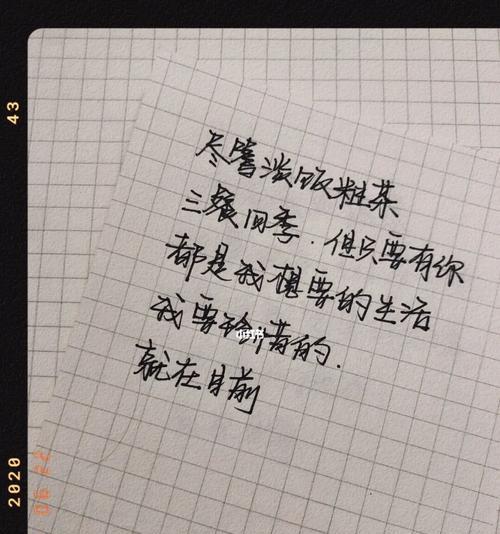 43
尽尝淡饭粗茶
三餐四季.但只要有你
都是我想要的生活
我要珍惜的.
就在目前
小红书
2020
06 22